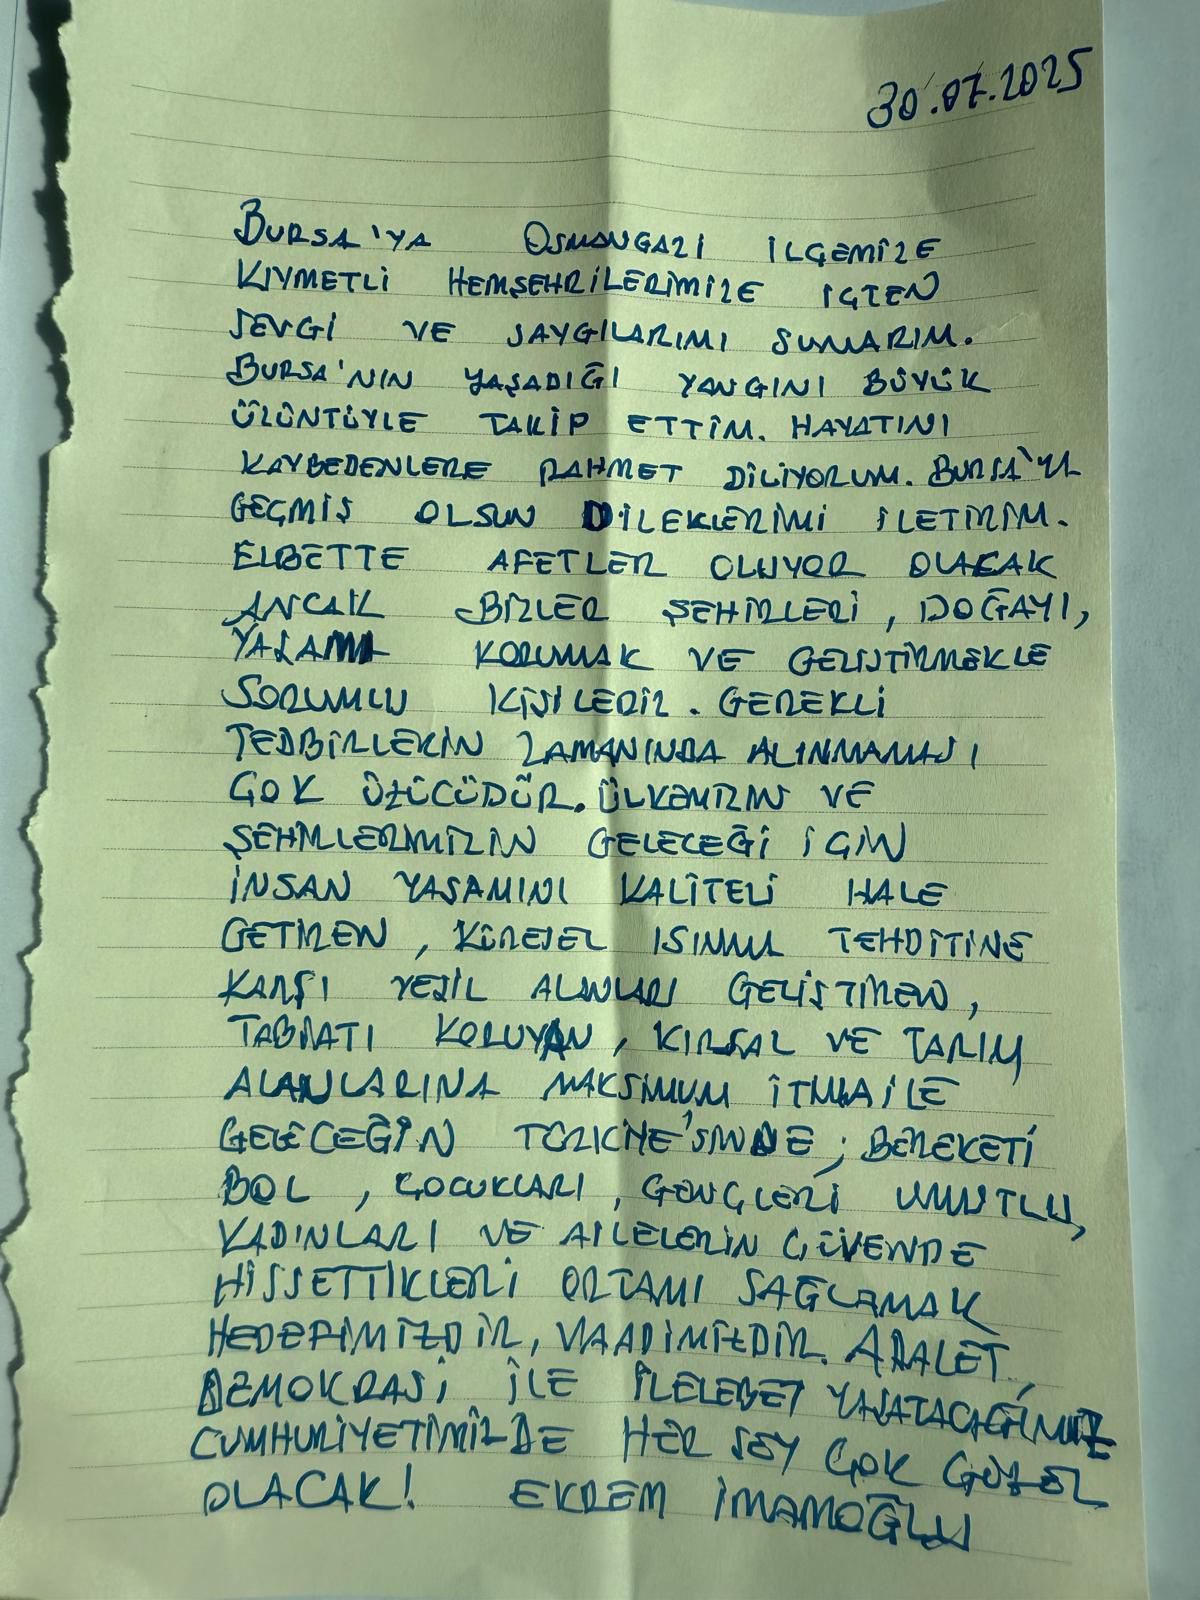 30.07.2025
BURSA'YA OSMANGAZİ İLÇEMİZE
KIYMETLİ HEMŞEHRİLERİMİZE İÇTEN
SEVGİ VE SAYGILARIMI SUNARIM.
BURSA'NIN YAŞADIĞI YANGINI BÜYÜK
ÜZÜNTÜYLE TAKİP ETTİM. HAYATINI
KAYBEDENLERE RAHMET DİLİYORUM. BURSA'YA
GEÇMİŞ OLSUN DİLEKLERİMİ İLETİRİM.
ELBETTE AFETLER OLUYOR OLACAK
ANCAK BİZLER ŞEHİRLERİ, DOĞAYI,
YAŞAMI KORUMAK VE GELİŞTİRMEKLE
SORUMLU KİŞİLERİZ. GEREKLİ
TEDBİRLERİN ZAMANINDA ALINMAMASI
ÇOK ÜZÜCÜDÜR. ÜLKEMİZİN VE
ŞEHİRLERİMİZİN GELECEĞİ İÇİN
İNSAN YAŞAMINI KALİTELİ HALE
GETİREN, KÜRESEL ISINMA TEHDİTİNE
KARŞI YEŞİL ALANLARI GELİŞTİREN,
TABİATI KORUYAN, KIRSAL VE TARIM
ALANLARINA MAKSİMUM İTİNA İLE
GELECEĞİN TÜRKİYE'SİNDE; BEREKETİ
BOL, ÇOCUKLARI, GENÇLERİ UMUTLU,
KADINLARI VE AİLELERİN GÜVENDE
HİSSETTİKLERİ ORTAMI SAĞLAMAK
HEDEFİMİZDİR, VAADİMİZDİR. ADALET,
DEMOKRASİ İLE İLELEBET YAŞATACAĞIMIZ
CUMHURİYETİMİZDE HER ŞEY ÇOK GÜZEL
OLACAK! EKREM İMAMOĞLU